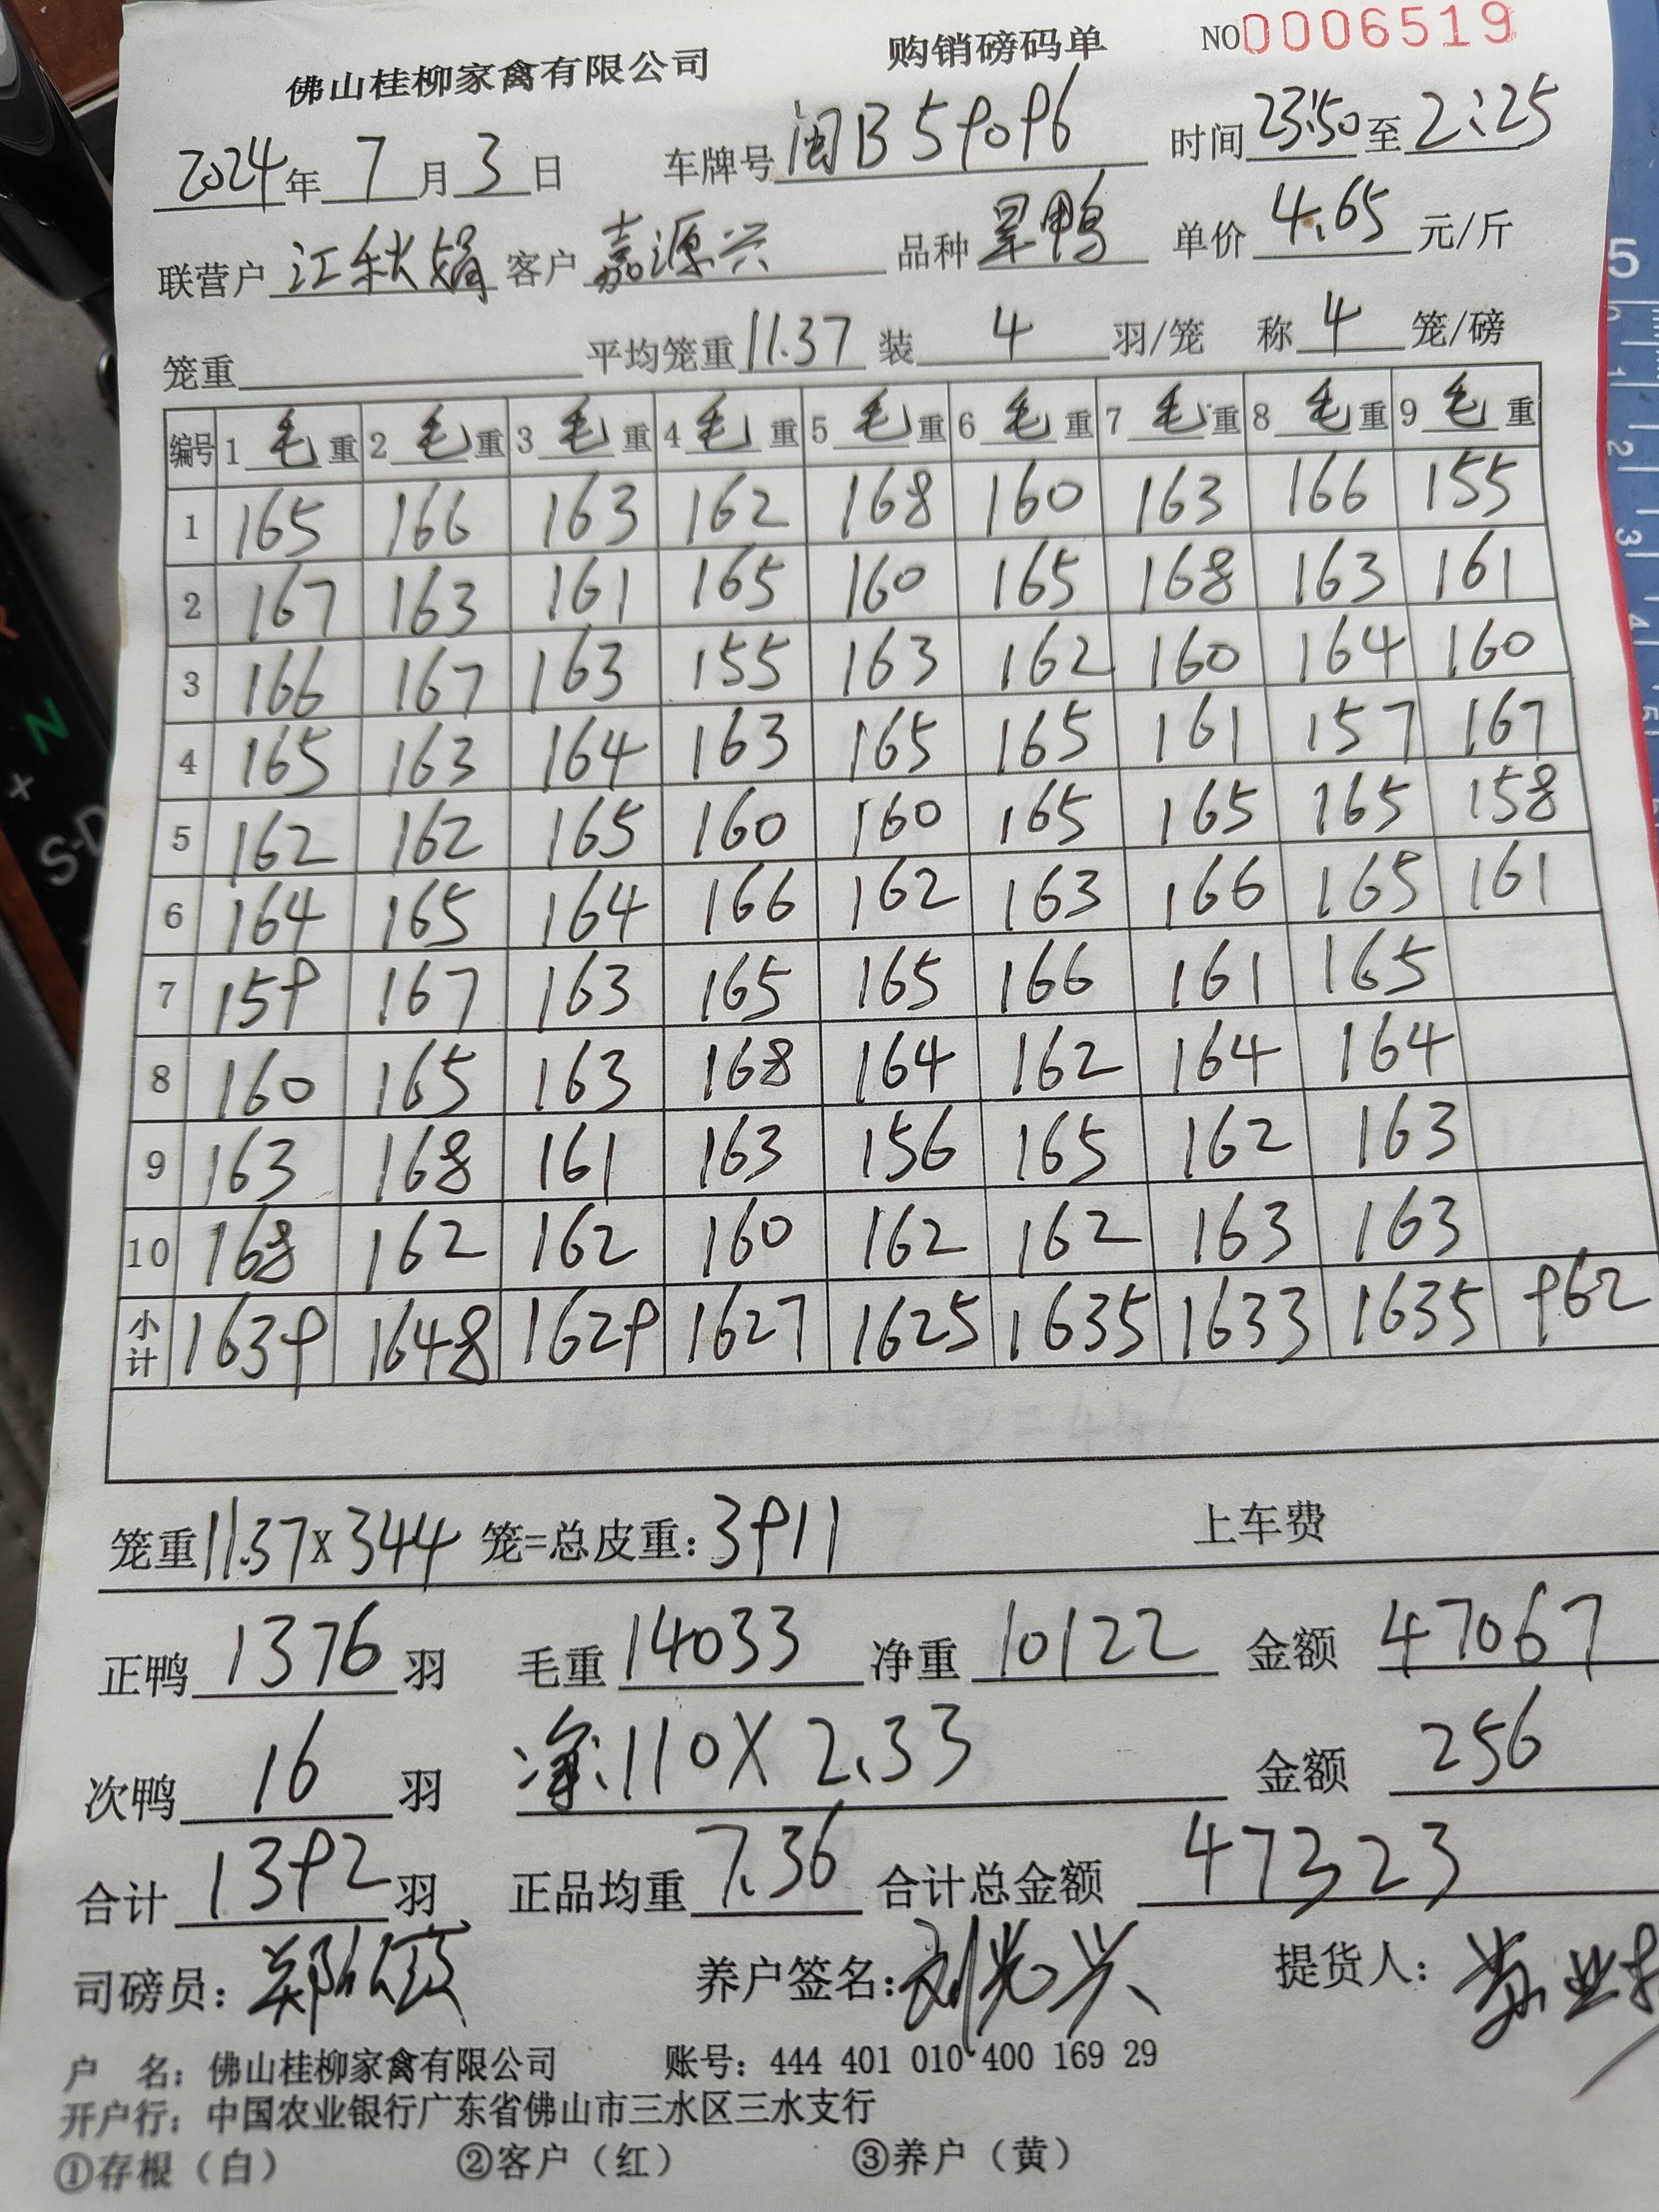 佛山桂柳家禽有限公司 购销磅码单 NO0006519
2024年 7月3日 车牌号闽B59096 时间23:50至2:25
联营户江秋娟 客户嘉源兴 品种旱鸭 单价4.65元/斤
笼重 平均笼重11.37 装4羽/笼 称4笼/磅
编号 1毛重 2毛重 3毛重 4毛重 5毛重 6毛重 7毛重 8毛重 9毛重
1 165 166 163 162 168 160 163 166 155
2 167 163 161 165 160 165 168 163 161
3 166 167 163 155 163 162 160 164 160
4 165 163 164 163 165 165 161 157 167
5 162 162 165 160 160 165 165 165 158
6 164 165 164 166 162 163 166 165 161
7 159 167 163 165 165 166 161 165
8 160 165 163 168 164 162 164 164
9 163 168 161 163 156 165 162 163
10 168 162 162 160 162 162 163 163
小计 1639 1648 1629 1627 1625 1635 1633 1635 962
笼重11.37X344笼=总皮重:3911 上车费
正鸭1376羽 毛重14033 净重10122 金额47067
次鸭16羽 净:110X2.33 金额256
合计1392羽 正品均重7.36 合计总金额47323
司磅员: 养户签名:刘光兴 提货人:
户 名: 佛山桂柳家禽有限公司 账号: 444 401 010 400 169 29
开户行: 中国农业银行广东省佛山市三水区三水支行
①存根（白） ②客户（红） ③养户（黄）